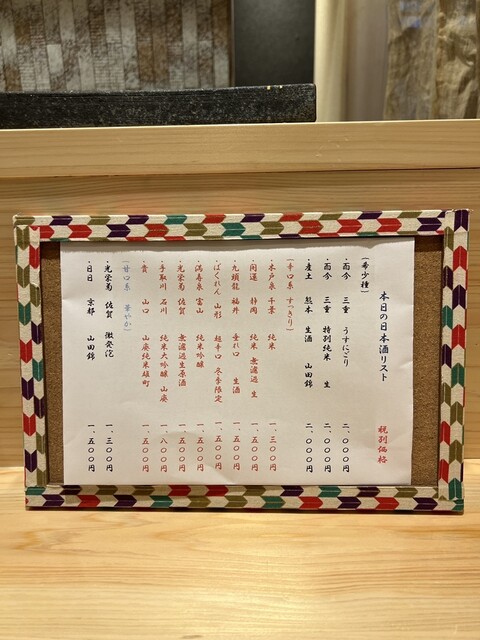 本日の日本酒リスト 税別価格
(希少種)
・而今 三重 うすにごり 二、〇〇〇円
・而今 三重 特別純米 生 二、〇〇〇円
・産土 熊本 生酒 山田錦 二、〇〇〇円
(辛口系 すっきり)
・木戸泉 千葉 純米 一、三〇〇円
・開運 静岡 純米 無濾過 生 一、五〇〇円
・九頭龍 福井 垂れ口 生酒 一、五〇〇円
・ばくれん 山形 超辛口 冬季限定 一、五〇〇円
・満寿泉 富山 純米吟醸 一、五〇〇円
・光栄菊 佐賀 無濾過生原酒 一、五〇〇円
・手取川 石川 純米大吟醸 山廃 一、八〇〇円
・貴 山口 山廃純米雄町 一、五〇〇円
(甘口系 華やか)
・光栄菊 佐賀 微発泡 一、三〇〇円
・日日 京都 山田錦 一、五〇〇円